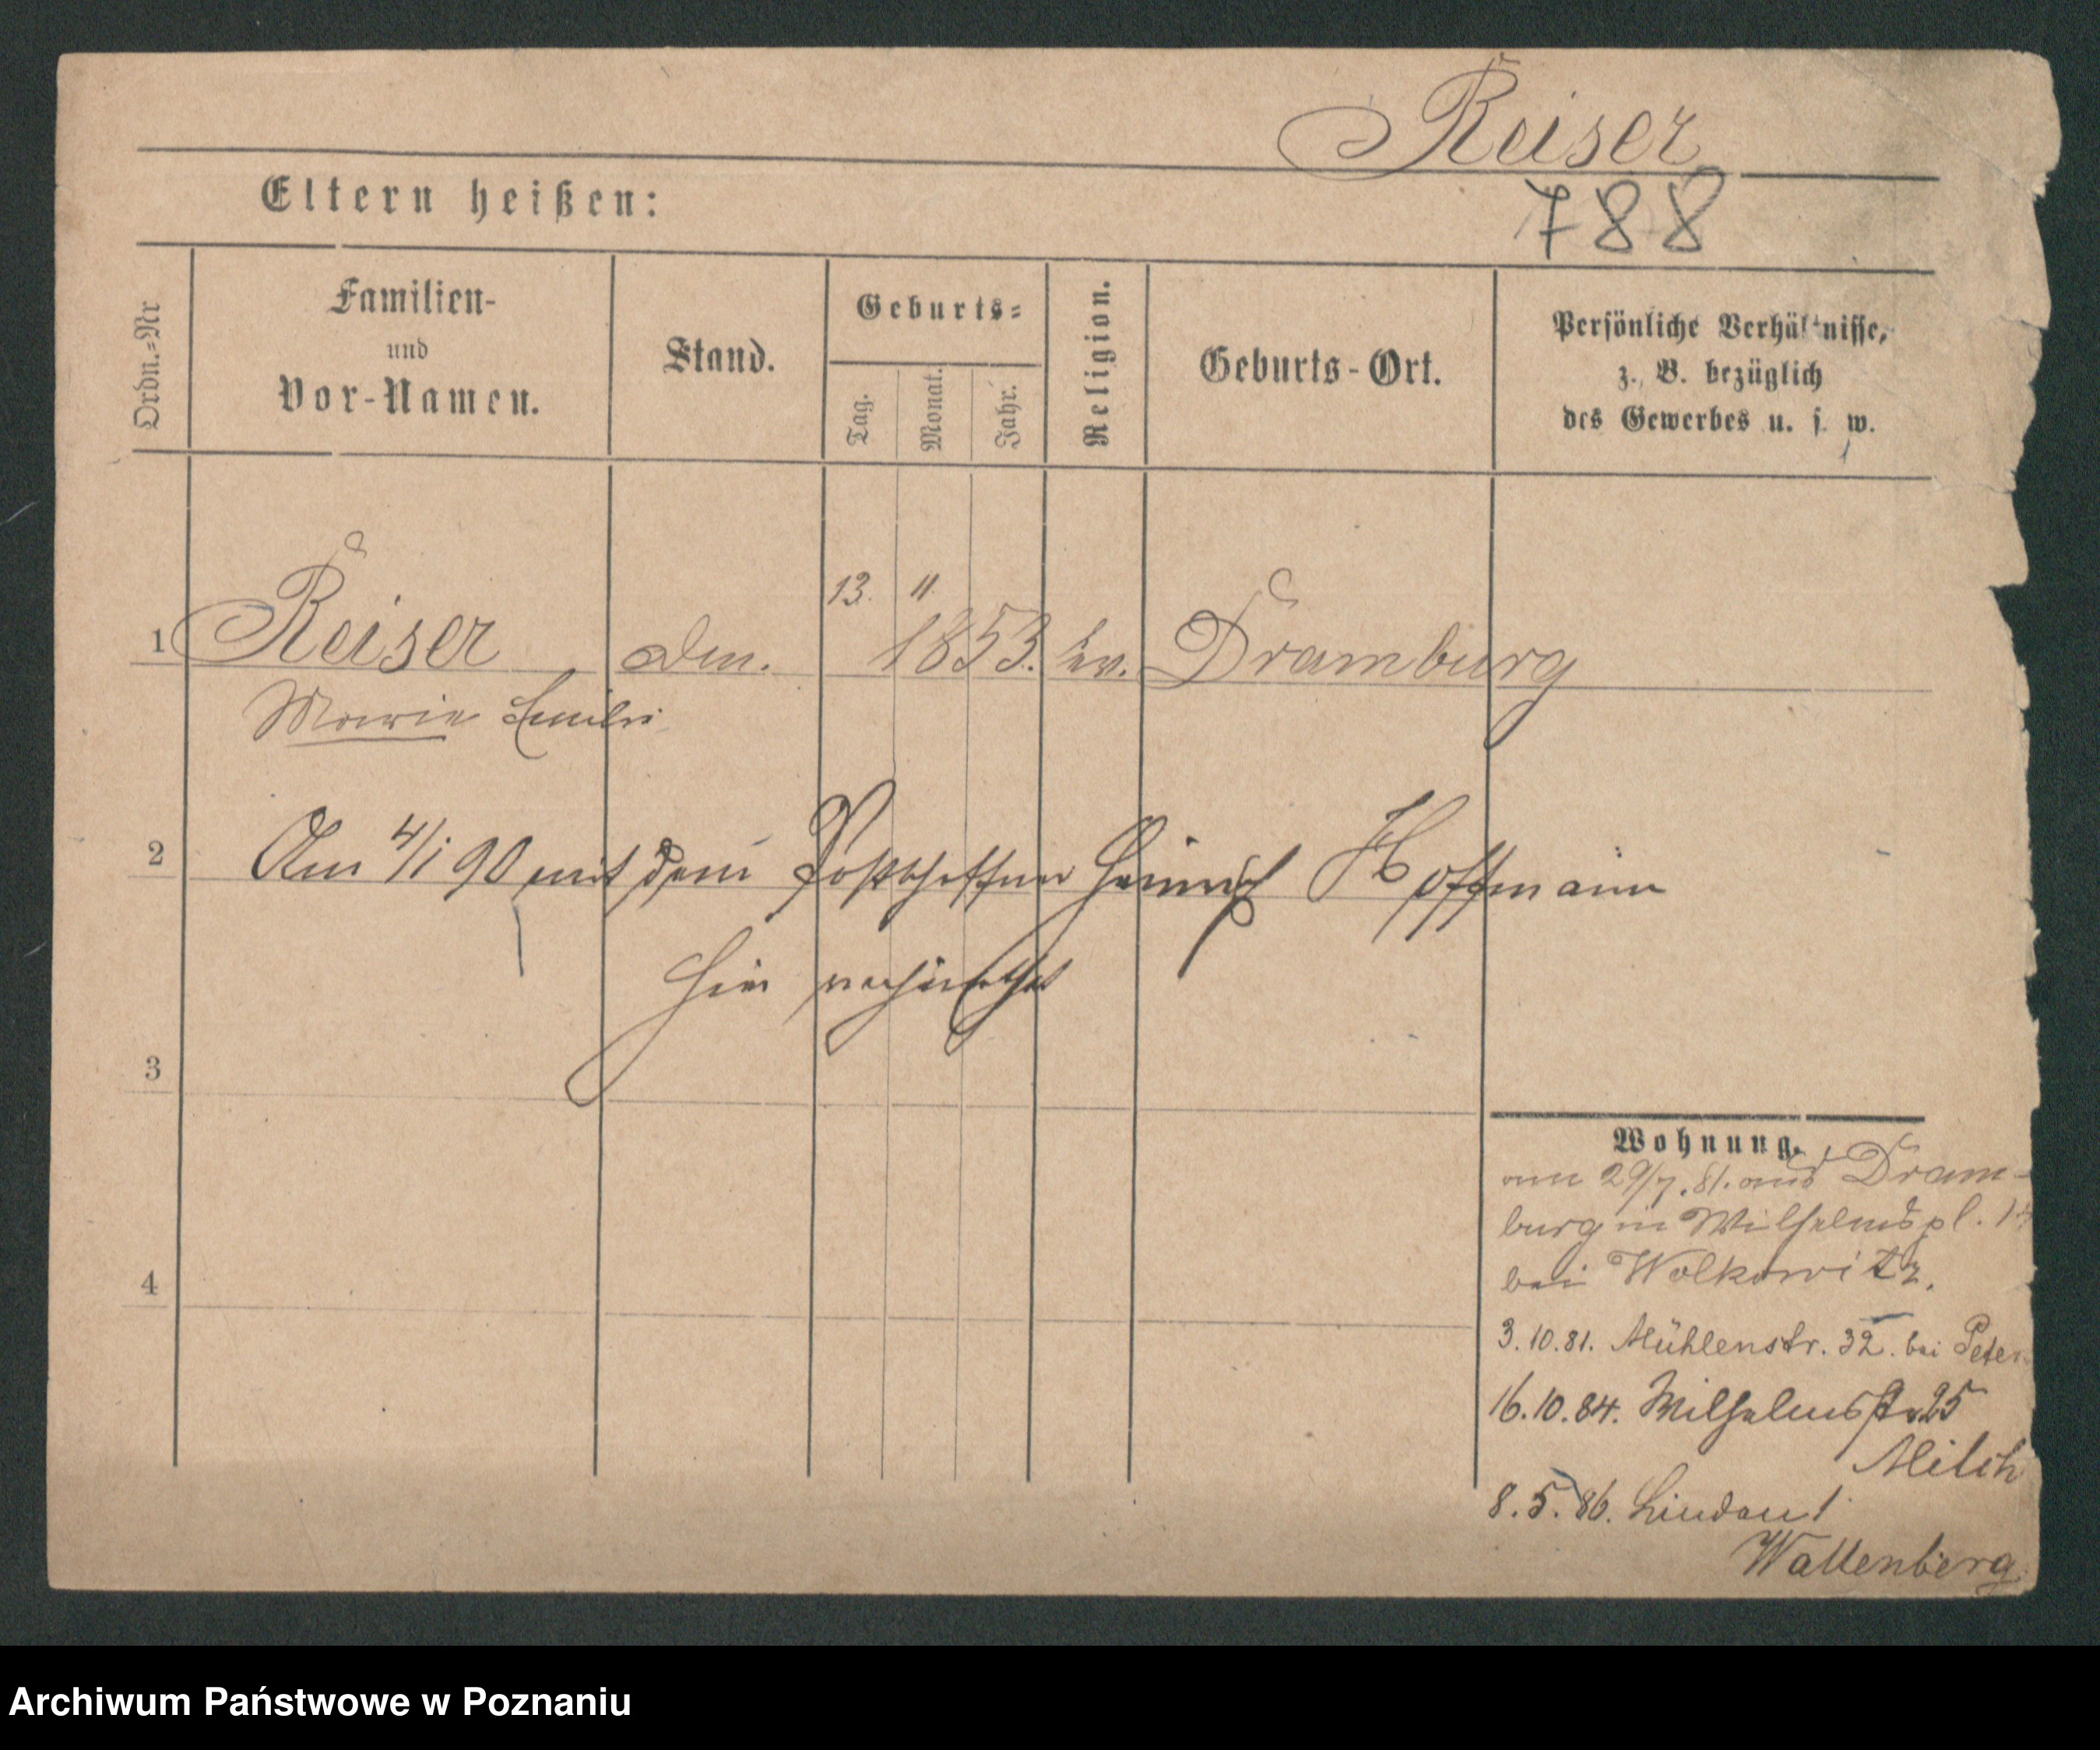 Reiser
Eltern heißen:
788
Ordn.-Nr
Familien-
und
Vor-Namen.
Stand.
Geburts-
Tag.
Monat.
Jahr.
Religion.
Geburts-Ort.
Persönliche Verhältnisse,
z. B. bezüglich
des Gewerbes u. s. w.
1
Reiser
13. 11. 1853. ev. Dramburg
Marie Emilie
2
Am 4/1 90 mit dem Postschaffner Heinrich Hoffmann
hier verheirathet
3
4
Wohnung.
am 29/7. 81. aus Dram-
burg in Wilhelmspl.
bei Wolkowitz.
3. 10. 81. Mühlenstr. 32. bei Peter
16. 10. 84. Wilhelmstr 25
Milch
8. 5. 86. Lindenst
Wallenberg
Archiwum Państwowe w Poznaniu